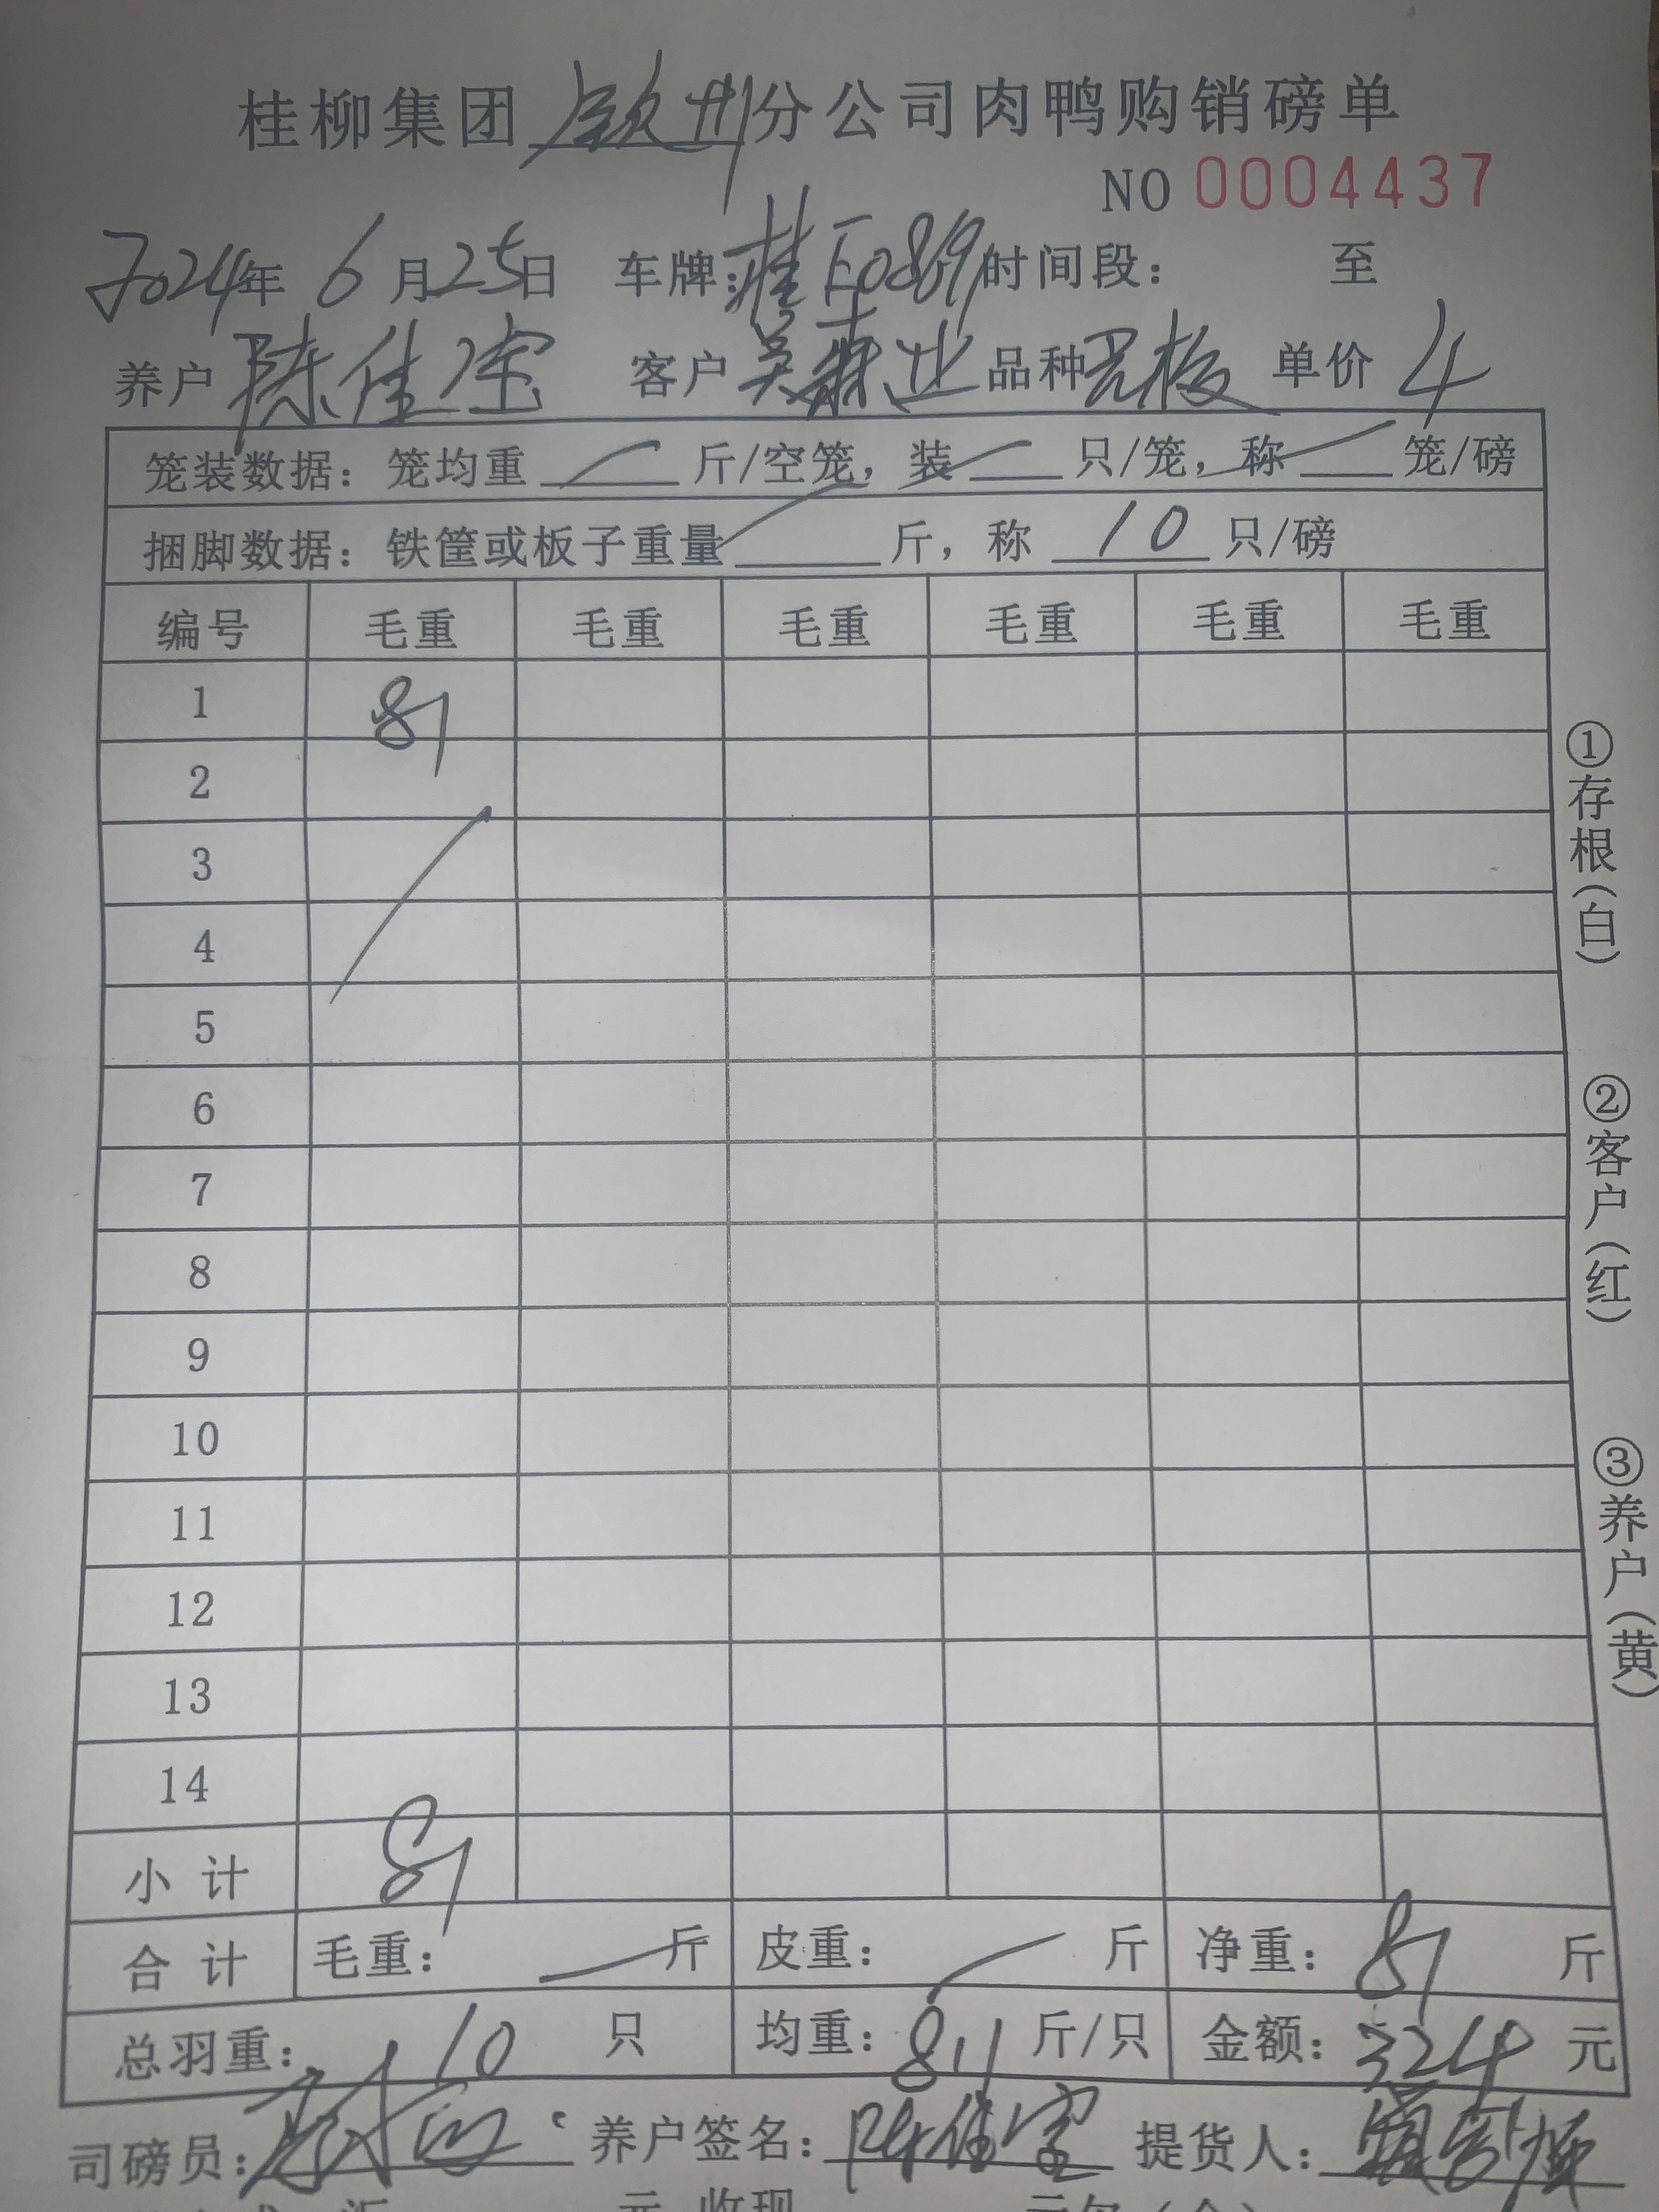 桂柳集团钦州分公司肉鸭购销磅单
NO 0004437
2024年6月25日 车牌:桂E0869 时间段: 至
养户 陈佳 客户 吴森业 品种 单价 4
笼装数据: 笼均重 斤/空笼, 装 只/笼, 称 笼/磅
捆脚数据: 铁筐或板子重量 斤, 称 10 只/磅
编号 毛重 毛重 毛重 毛重 毛重 毛重
1 81
2
3
4
5
6
7
8
9
10
11
12
13
14
小计 81
合计 毛重: 斤 皮重: 斤 净重: 81 斤
总羽重: 10 只 均重: 8.1 斤/只 金额: 324 元
司磅员: 养户签名: 陈佳 提货人:
元 收现
①存根(白)
②客户(红)
③养户(黄)